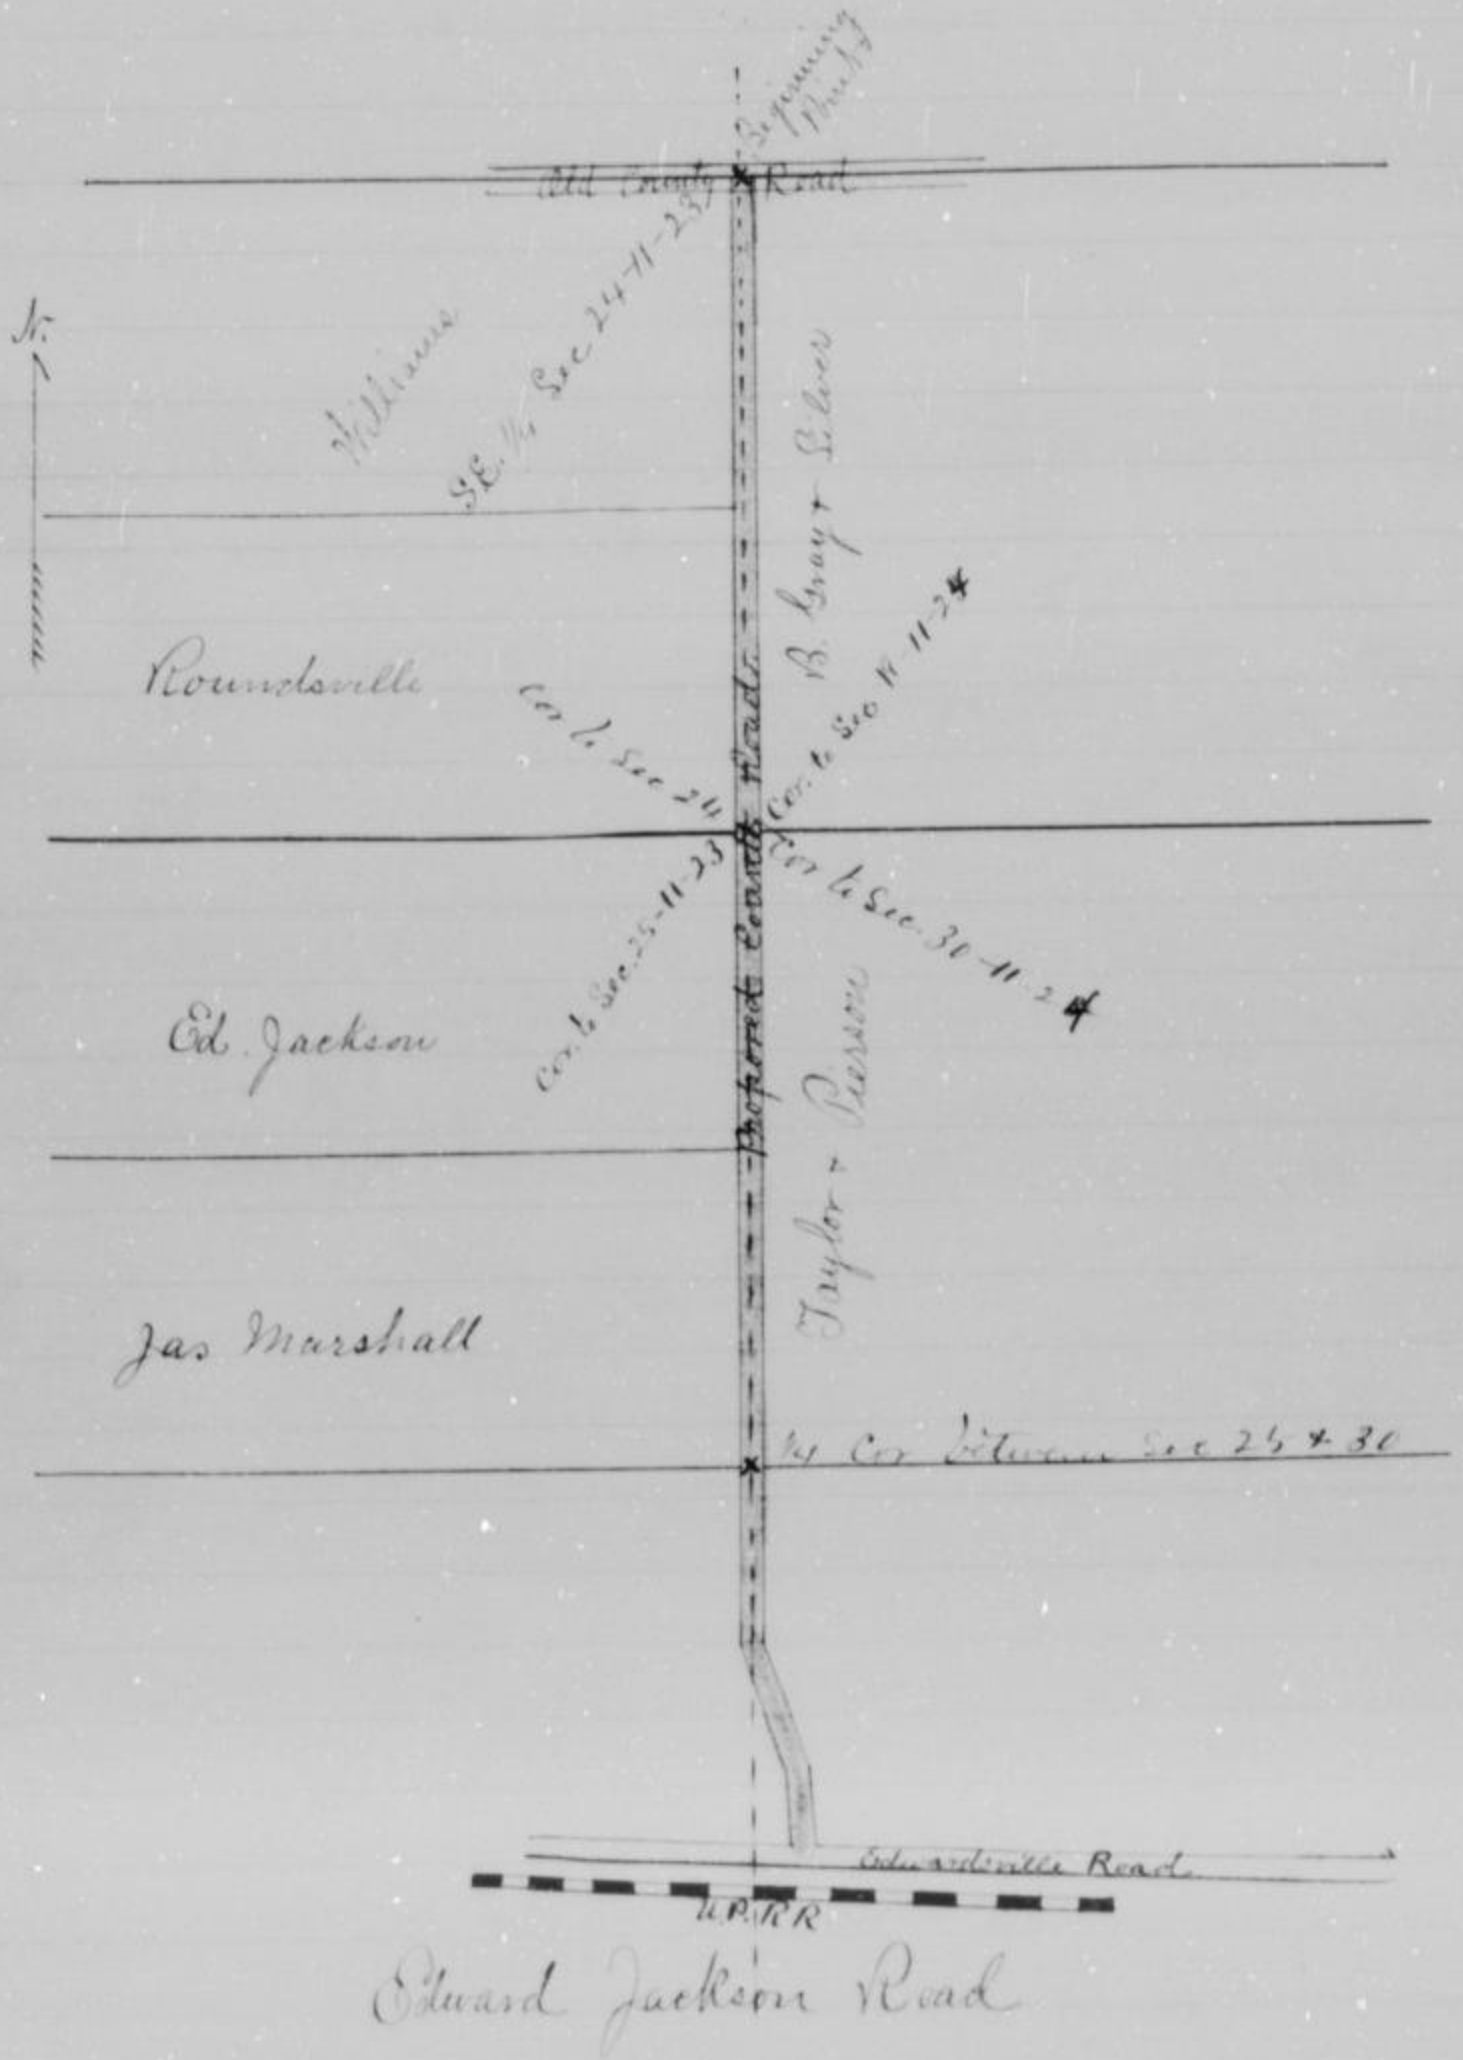 Begining
Point
Old County Road
N.
Williams
S.E. 1/4 Sec 24-11-23
B. Gray & Silver
Roundsville
Cor to Sec 24
Cor. to Sec 19-11-24
Proposed County Road
Cor. to Sec. 25-11-23
Cor to Sec. 30-11-24
Ed. Jackson
Taylor & Pierson
Jas Marshall
1/4 Cor between Sec 25 & 30
Edwardsville Road
U.P.R.R
Edward Jackson Road